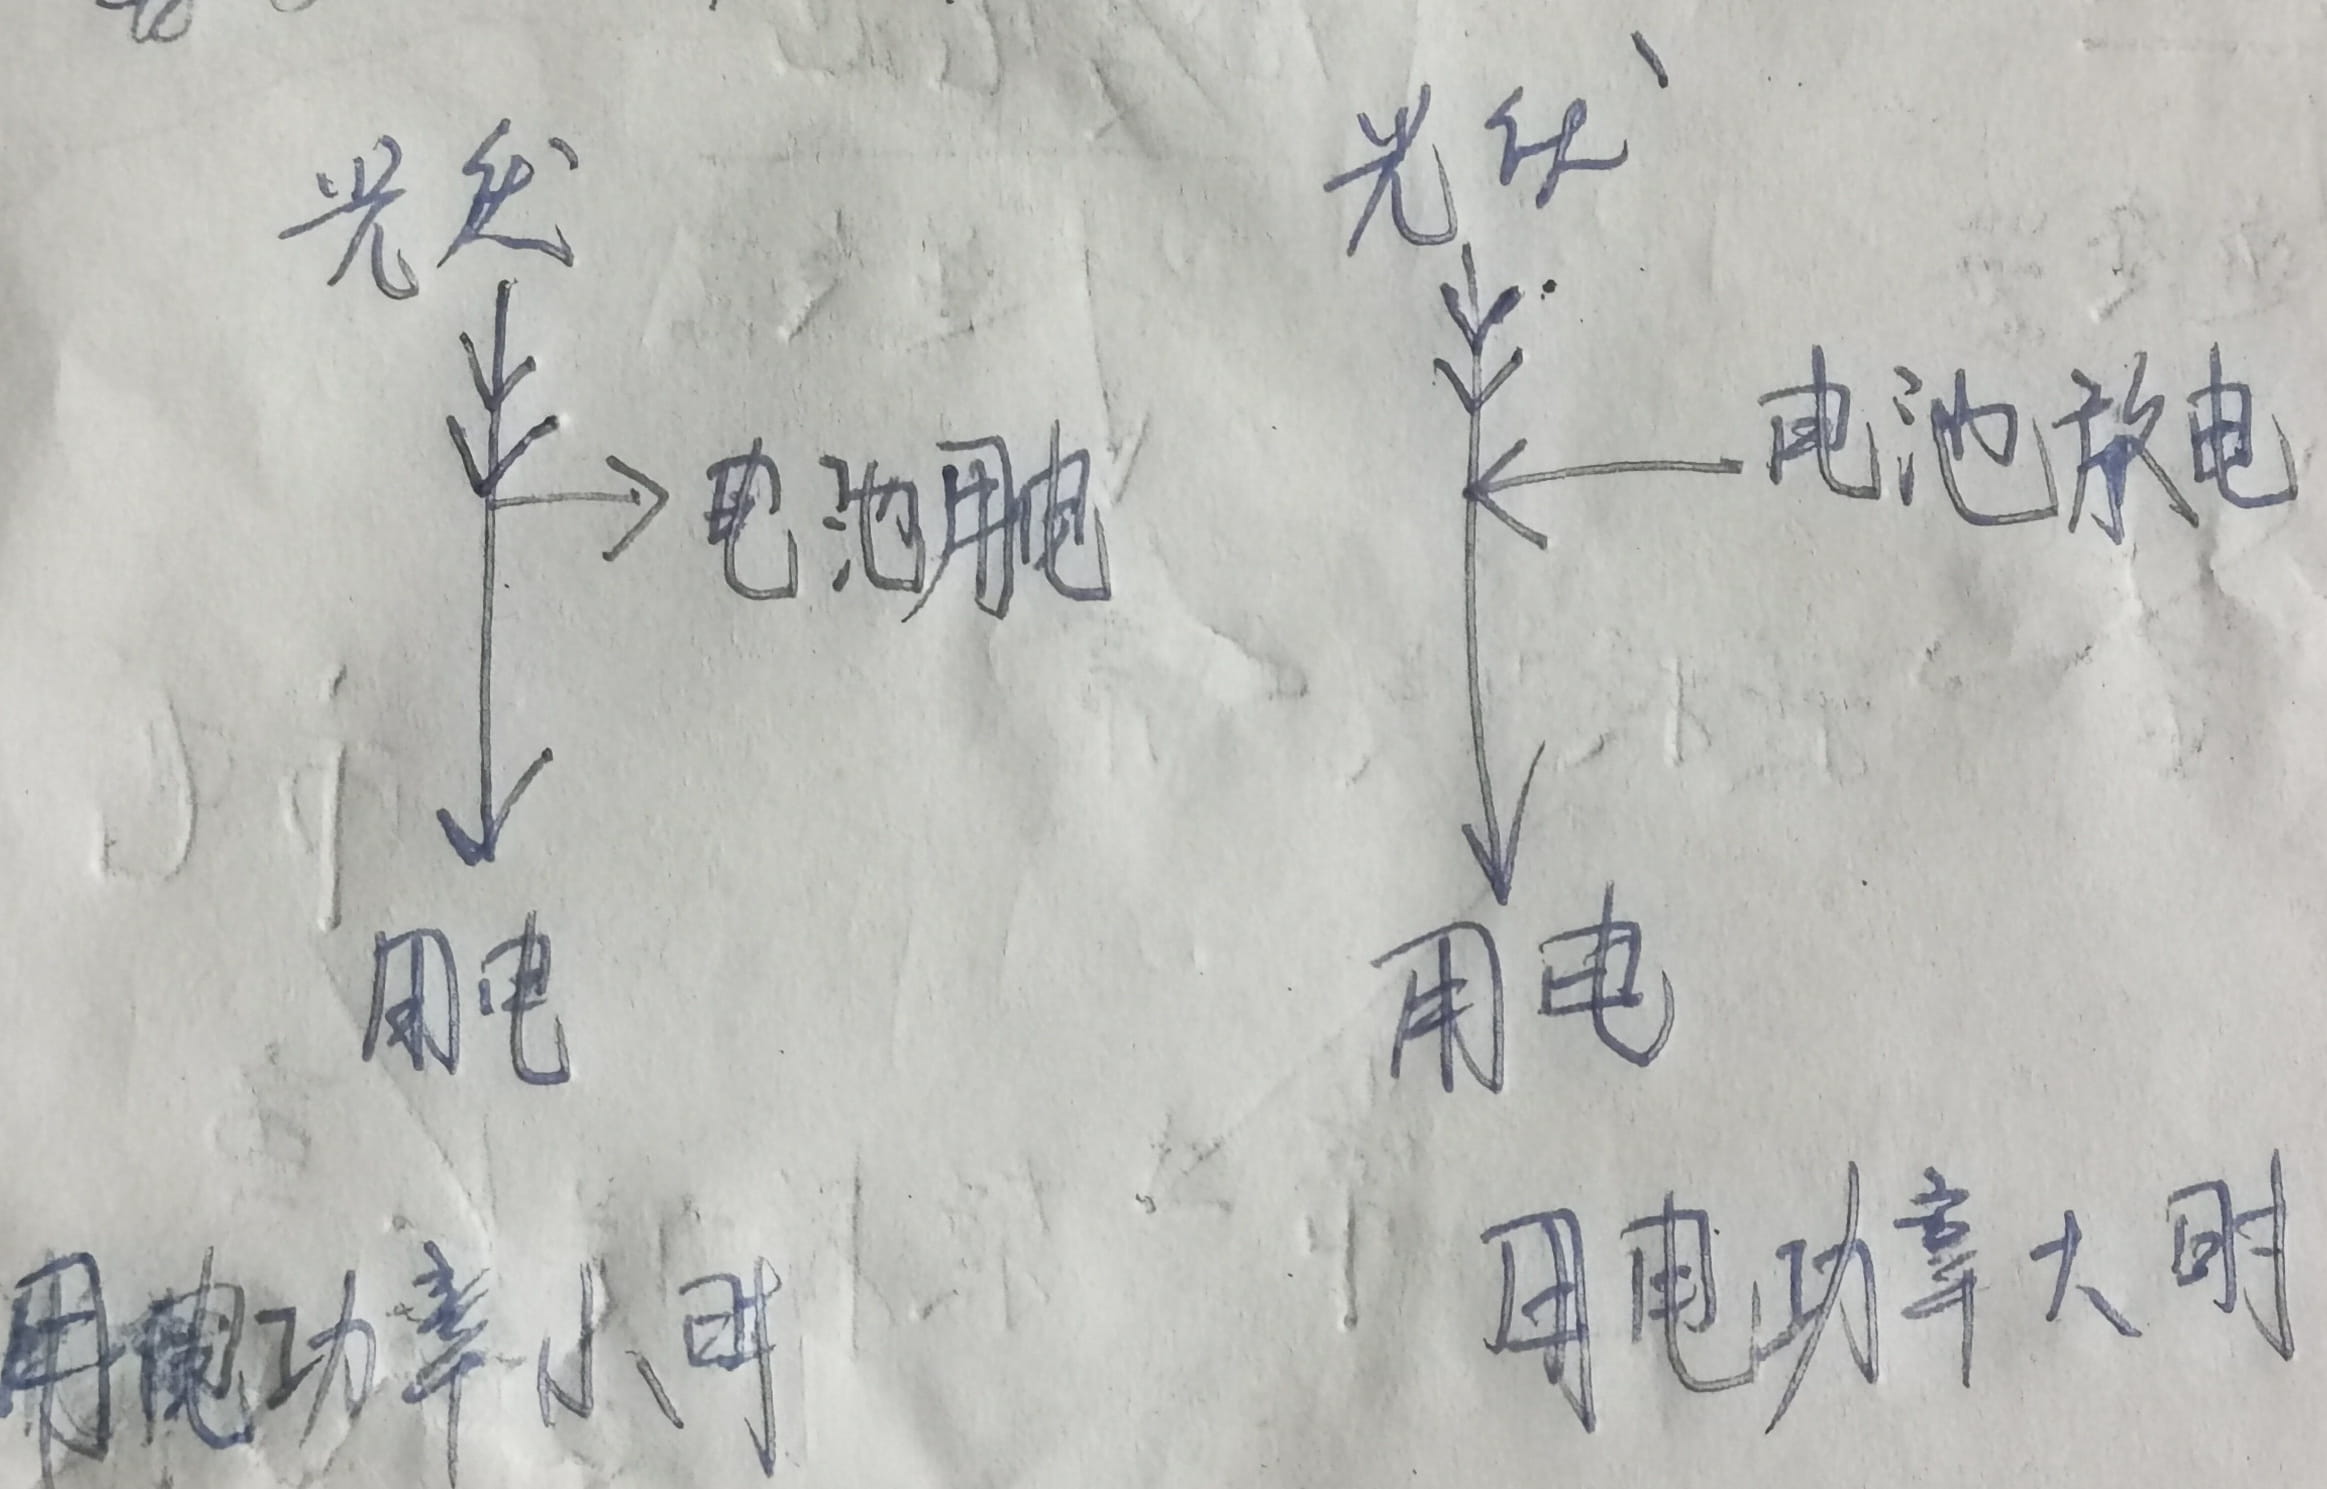 光伏
电池用电
用电
用电功率小时
光伏
电池放电
用电
用电功率大时